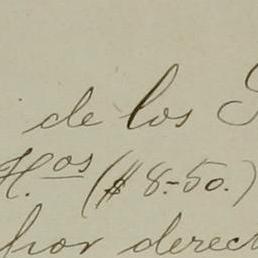 de los
H.os ($8-50.)
por derec